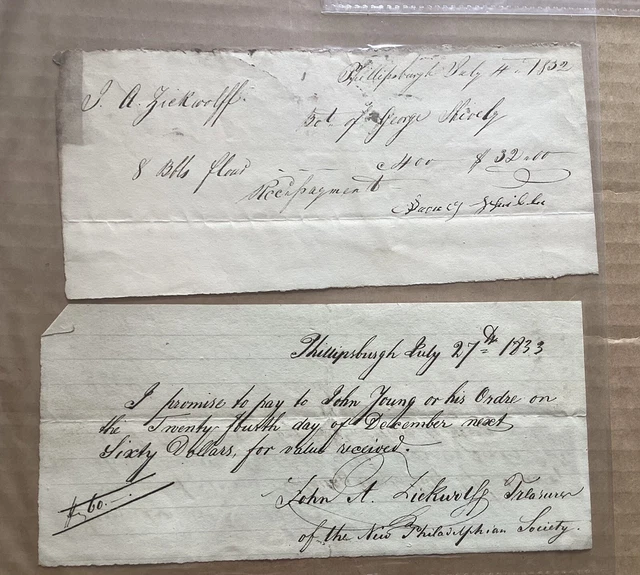 Phillipsburgh July 4th 1832
J. A. Zickwolff
Bot of George Shively
8 Bbls flour @ 4 00 $ 32 .. 00
Rec payment
Phillipsburgh July 27th 1833
I promise to pay to John Young or his Ordre on
the Twenty fourth day of December next
Sixty Dollars, for value received.
$ 60.—
John A. Zickwolff Treasurer
of the New Philadelphian Society.